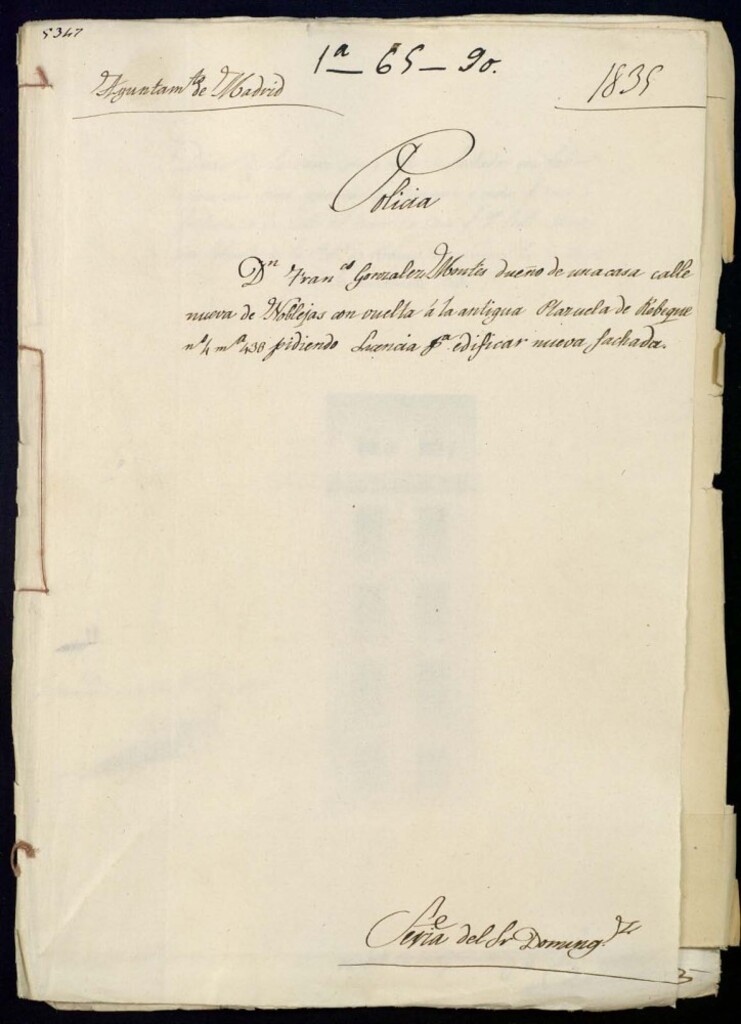 5347
1ª - 65 - 90.
Ayuntamto de Madrid
1835
Policia
Dn Franco Gonzalez Montes dueño de una casa calle
nueva de Noblejas con vuelta á la antigua Plazuela de Rebeque
nº 4 mª 438 pidiendo Licencia pª edificar nueva fachada.
Seria del Sr Domingz